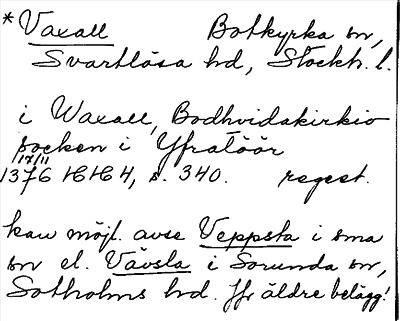 *Vaxall Botkyrka sn,
Svartlösa hd, Stockh. l.
i Waxall, Bodhvidakirkio
socken i Yfratöör
17/11
1376 HH4, s. 340. regest.
kan möjl. avse Veppsta i sma
sn el. Vävsla i Sorunda sn,
Sotholms hd. Jfr äldre belägg!